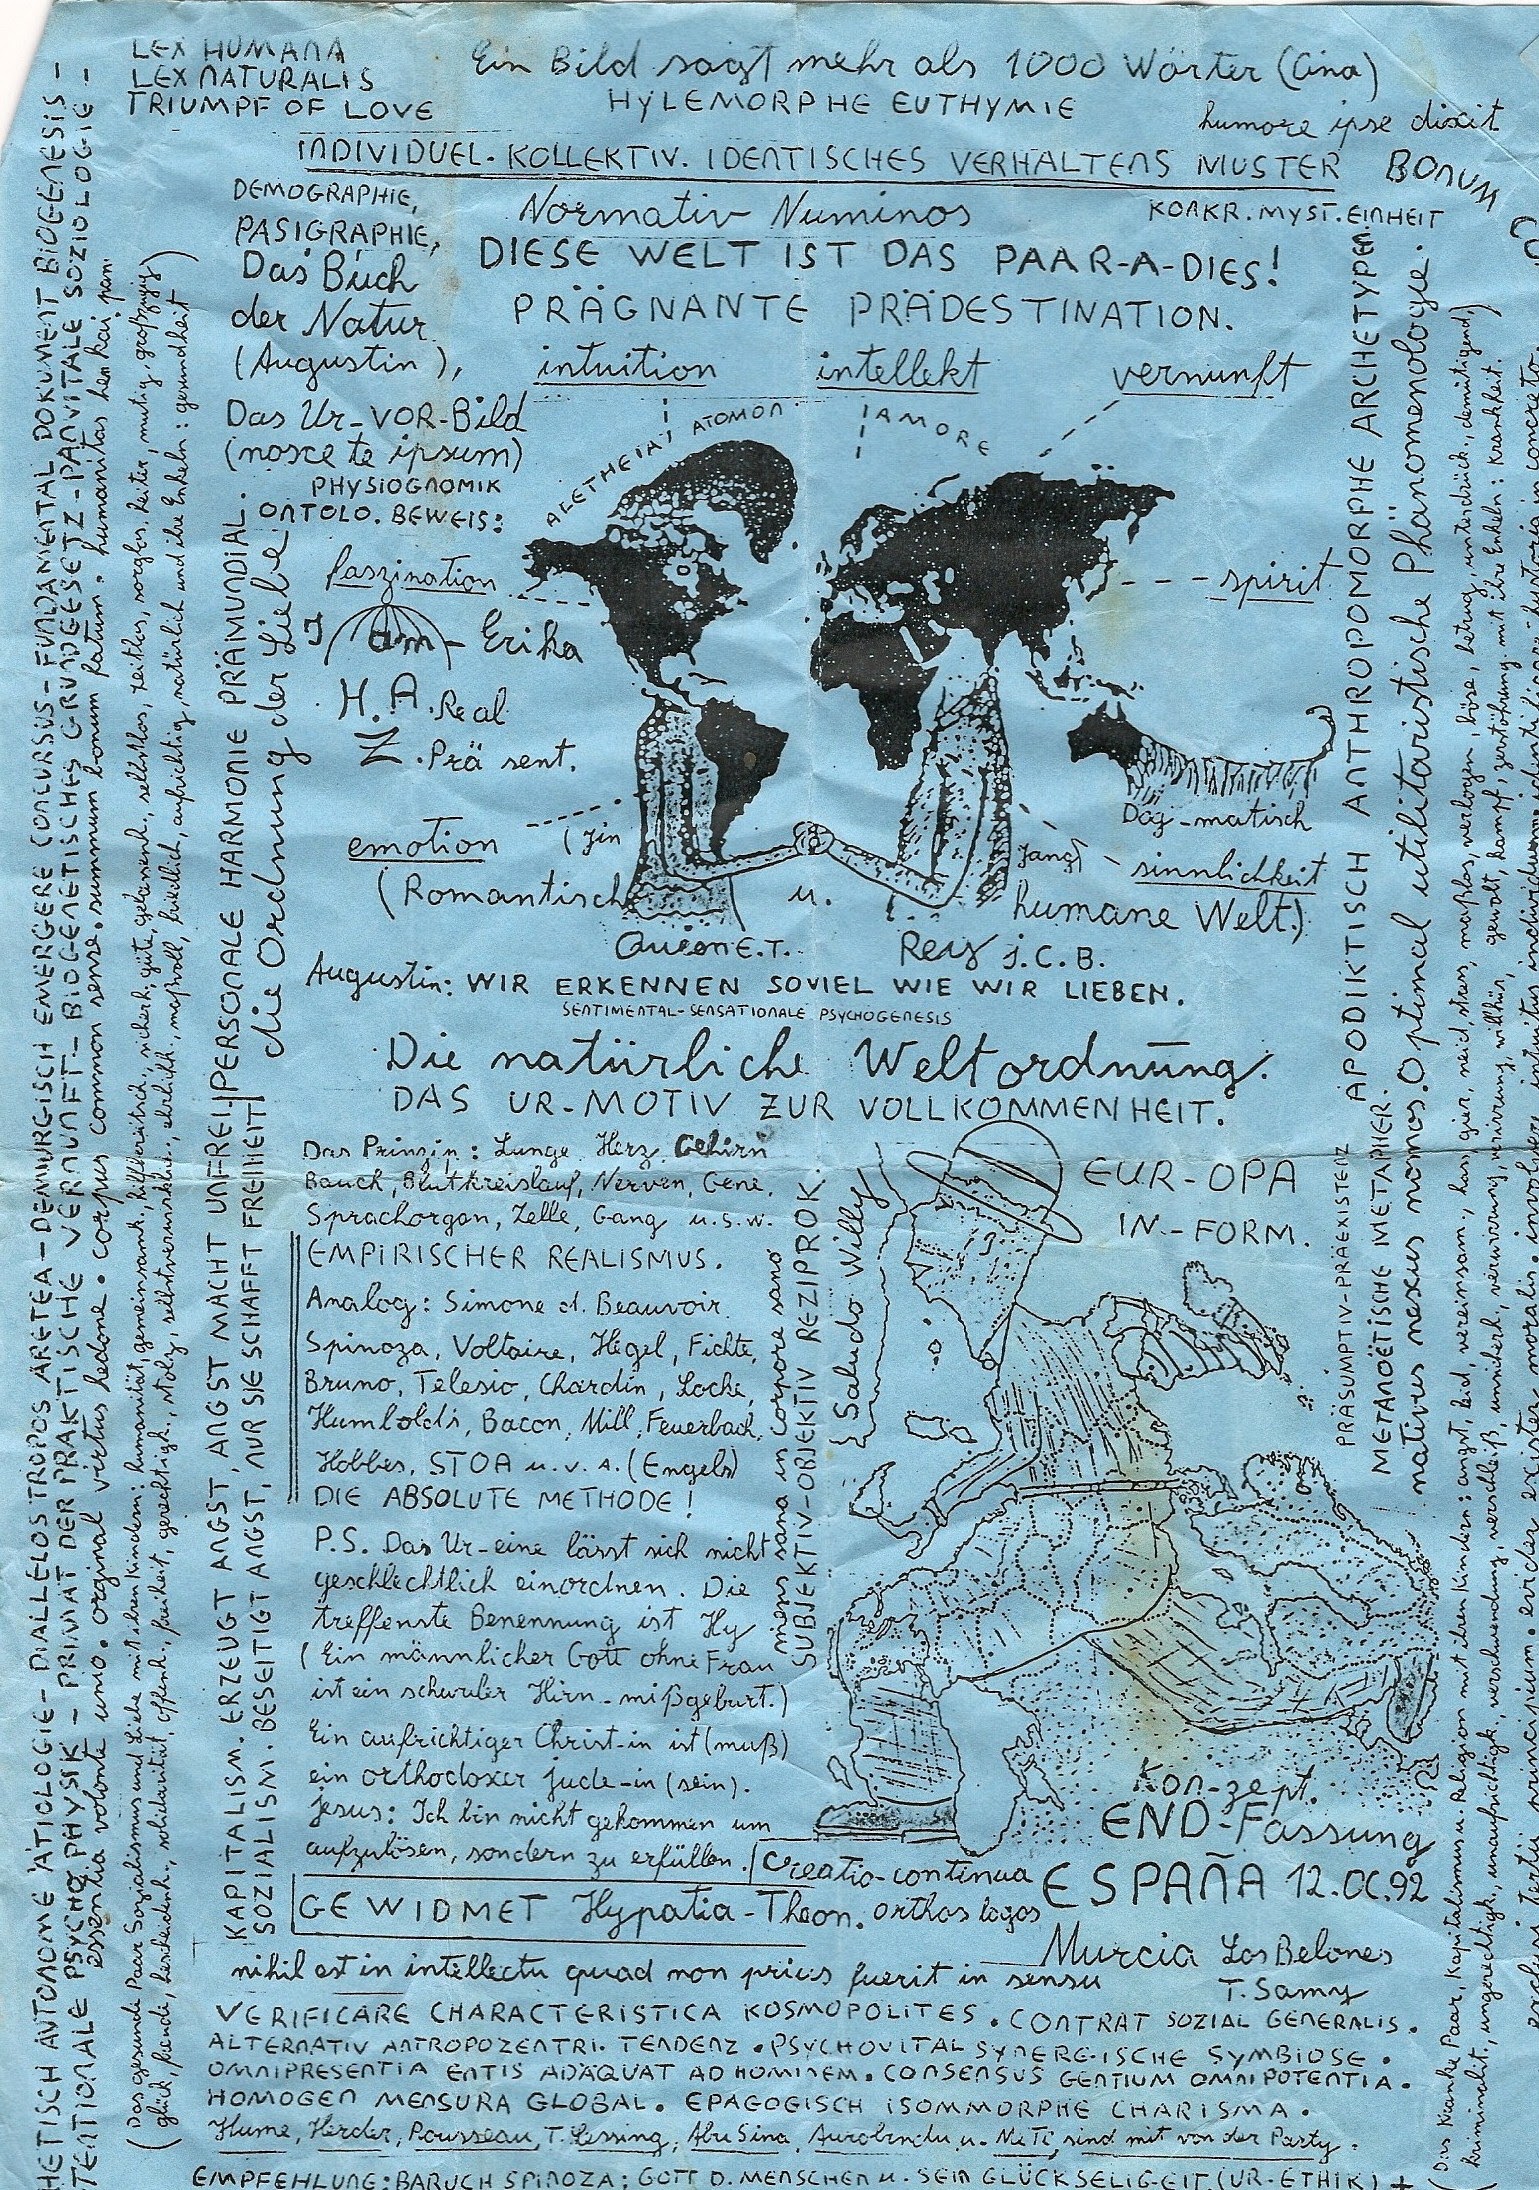 LEX HUMANA
LEX NATURALIS
TRIUMPF OF LOVE
Ein Bild sagt mehr als 1000 Wörter (Cina)
HYLEMORPHE EUTHYMIE
humore ipse dixit
BONUM
INDIVIDUEL-KOLLEKTIV. IDENTISCHES VERHALTENS MUSTER
DEMOGRAPHIE,
PASIGRAPHIE,
Das Buch
der Natur
(Augustin),
Normativ Numinos
KONKR. MYST. EINHEIT
DIESE WELT IST DAS PAAR-A-DIES!
PRÄGNANTE PRÄDESTINATION.
intuition intellekt vernunft
Das Ur-VOR-Bild
(nosce te ipsum)
PHYSIOGNOMIK
ONTOLO. BEWEIS:
ALETHEIA! ATOMON
AMORE
faszination
spirit
I am-Erika
H.A. Real
Z. Prä sent.
Dog-matisch
emotion (Jin
Jang)
sinnlichkeit
(Romantisch u. humane Welt.)
Queen E.T. Rey J.C.B.
Augustin: WIR ERKENNEN SOVIEL WIE WIR LIEBEN.
SENTIMENTAL-SENSATIONALE PSYCHOGENESIS
Die natürliche Weltordnung.
DAS UR-MOTIV ZUR VOLLKOMMENHEIT.
Das Prinzip: Lunge Herz Gehirn
Bauch, Blutkreislauf, Nerven, Gene,
Sprachorgan, Zelle, Gang u.s.w.
EMPIRISCHER REALISMUS.
Analog: Simone d. Beauvoir
Spinoza, Voltaire, Hegel, Fichte,
Bruno, Telesio, Chardin, Locke,
Humboldt, Bacon, Mill, Feuerbach,
Hobbes, STOA u.v.a. (Engels)
DIE ABSOLUTE METHODE!
P.S. Das Ur-eine lässt sich nicht
geschlechtlich einordnen. Die
treffenste Benennung ist Hy
(Ein männlicher Gott ohne Frau
ist ein schwuler Hirn-mißgeburt.)
Ein aufrichtiger Christ-in ist (muß)
ein orthodoxer jude-in (sein).
Jesus: Ich bin nicht gekommen um
aufzulösen, sondern zu erfüllen.
mens sana in corpore sano
SUBJEKTIV-OBJEKTIV REZIPROK.
(Saludo Willy)
EUR-OPA
IN-FORM.
Kon-zept.
END-Fassung
creatio-continua
ESPAÑA 12.OC.92
GEWIDMET Hypatia-Theon. orthos logos
Murcia Los Belones
T. Samy
nihil est in intellectu quod non prius fuerit in sensu
VERIFICARE CHARACTERISTICA KOSMOPOLITES. CONTRAT SOZIAL GENERALIS.
ALTERNATIV ANTROPOZENTRI. TENDENZ. PSYCHOVITAL SYNERG-ISCHE SYMBIOSE.
OMNIPRESENTIA ENTIS ADÄQUAT AD HOMINEM. CONSENSUS GENTIUM OMNIPOTENTIA.
HOMOGEN MENSURA GLOBAL. EPAGOGISCH ISOMMORPHE CHARISMA.
Hume, Herder, Rousseau, T. Lessing, Abu Sina, Aurobindu u. Me Ti, sind mit von der Party.
EMPFEHLUNG: BARUCH SPINOZA; GOTT D. MENSCHEN U. SEIN GLÜCKSELIG-EIT. (UR-ETHIK) +
HETISCH AUTONOME ÄTIOLOGIE-DIALLELOS TROPOS ARETEA-DEMIURGISCH EMERGERE CONCURSUS-FUNDAMENTAL DOKUMENT BIOGENESIS-
TENTIONALE PSYCHO PHYSIK-PRIMAT DER PRAKTISCHE VERNUNFT-BIOGENETISCHES GRUNDGESETZ-PANVITALE SOZIOLOGIE-
essentia volonte uno. orginal vertus hedone. corpus common sense. summum bonum fatum. humanitas hen kai pan.
(Das gesunde Paar Sozialismus und Liebe mit ihren Kindern: humanität, gemeinsamk., hilfbereitsch., sicherh., güte, gebornenh., selbstlos, neidlos, sorglos, heiter, mutig, großzügig
glück, freude, bescheidenh., solidarität, offenh., freiheit, gerechtigk., stolz, selbstvertrauen, ehrlichk., maßvoll, friedlich, aufrichtig, natürlich und ihre Enkeln: gesundheit)
KAPITALISM. ERZEUGT ANGST, ANGST MACHT UNFREI,
SOZIALISM. BESEITIGT ANGST, NUR SIE SCHAFFT FREIHEIT
PERSONALE HARMONIE PRÄMUNDIAL.
die Ordnung der Liebe
PRÄSUMPTIV-PRÄEXISTENZ
METANOËTISCHE METAPHER.
APODIKTISCH ANTHROPOMORPHE ARCHETYPEN.
nativus nexus nomos. Optimal utilitaristische Phänomenologie.
(Das Kranke Paar, Kapitalismus u. Religion mit ihren Kindern: angst, leid, vereinsam., hass, gier, neid, stur, maßlos, verlogen, böse, betrug, unterdrück., demütigend,
kriminalit., ungerechtigk., unaufrichtigk., verschwendung, verschleiß, unnierk., verwirrung, willkür, gewalt, kampf, zerstöhrung. mit ihre Enkeln: krankheit.)